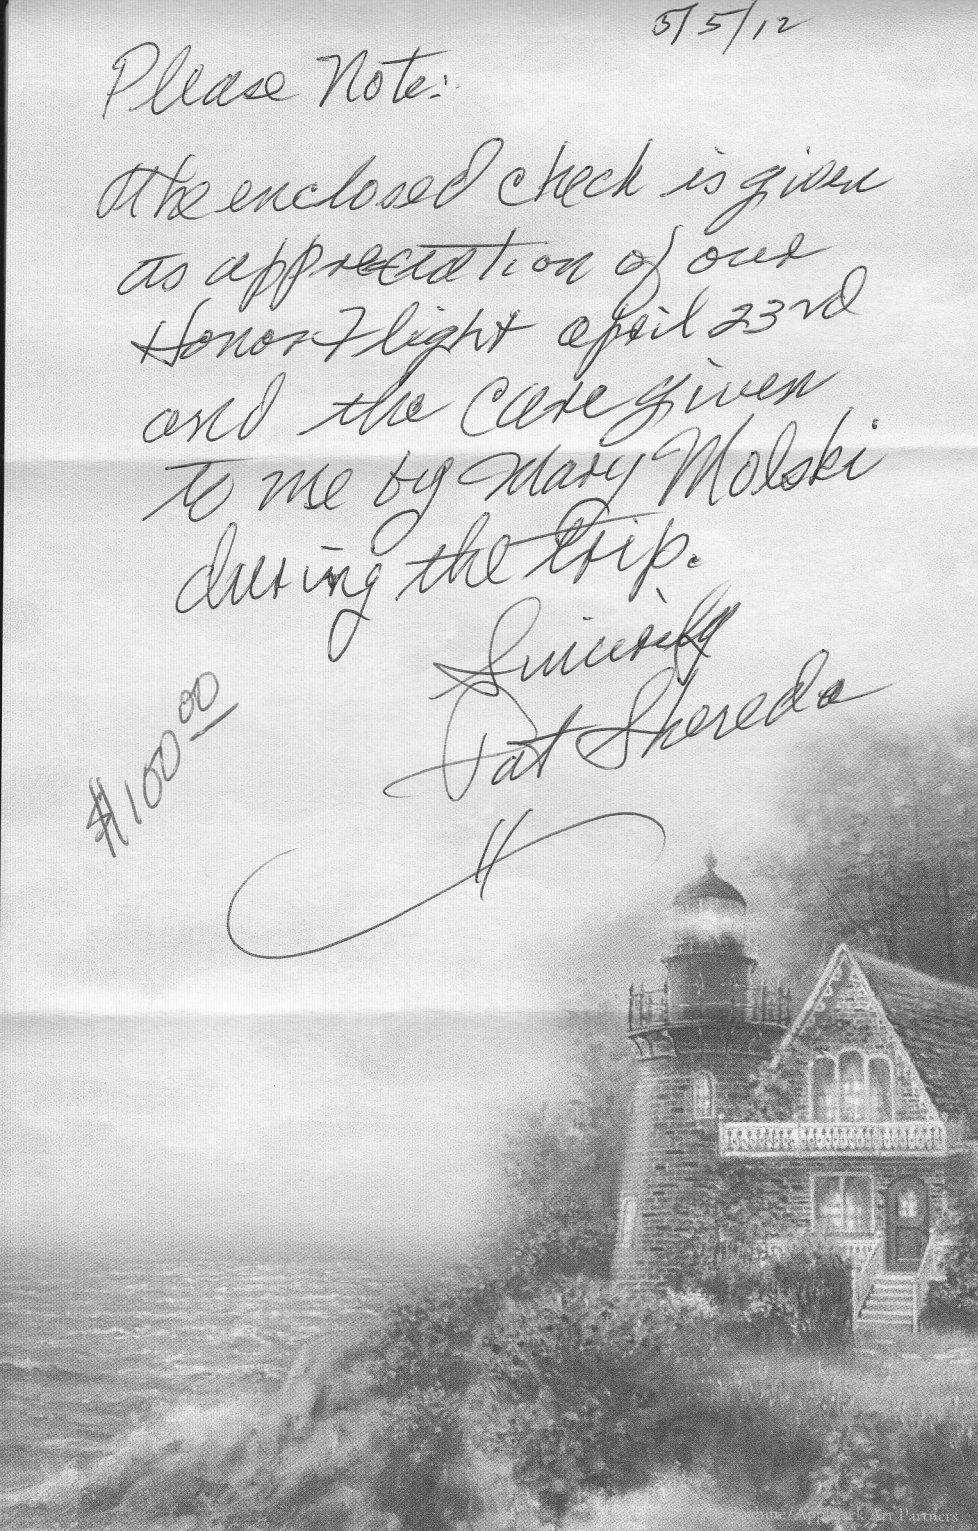 5/5/12
Please Note:
The enclosed check is given
as appreciation of our
Honor Flight april 23rd
and the care given
to me by Mary Molski
during the trip.
Sincerely
Pat Shereda
$100.00
Art Partners